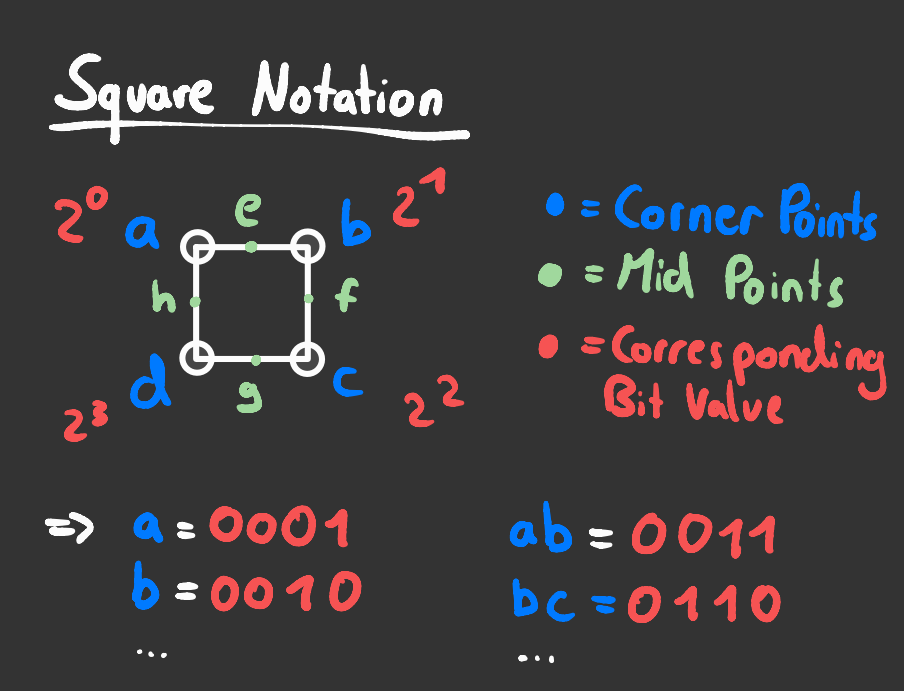 Square Notation
2⁰ a e b 2¹
h f
d g c
2³ 2²
• = Corner Points
• = Mid Points
• = Corresponding
Bit Value
=> a = 0001
b = 0010
...
ab = 0011
bc = 0110
...